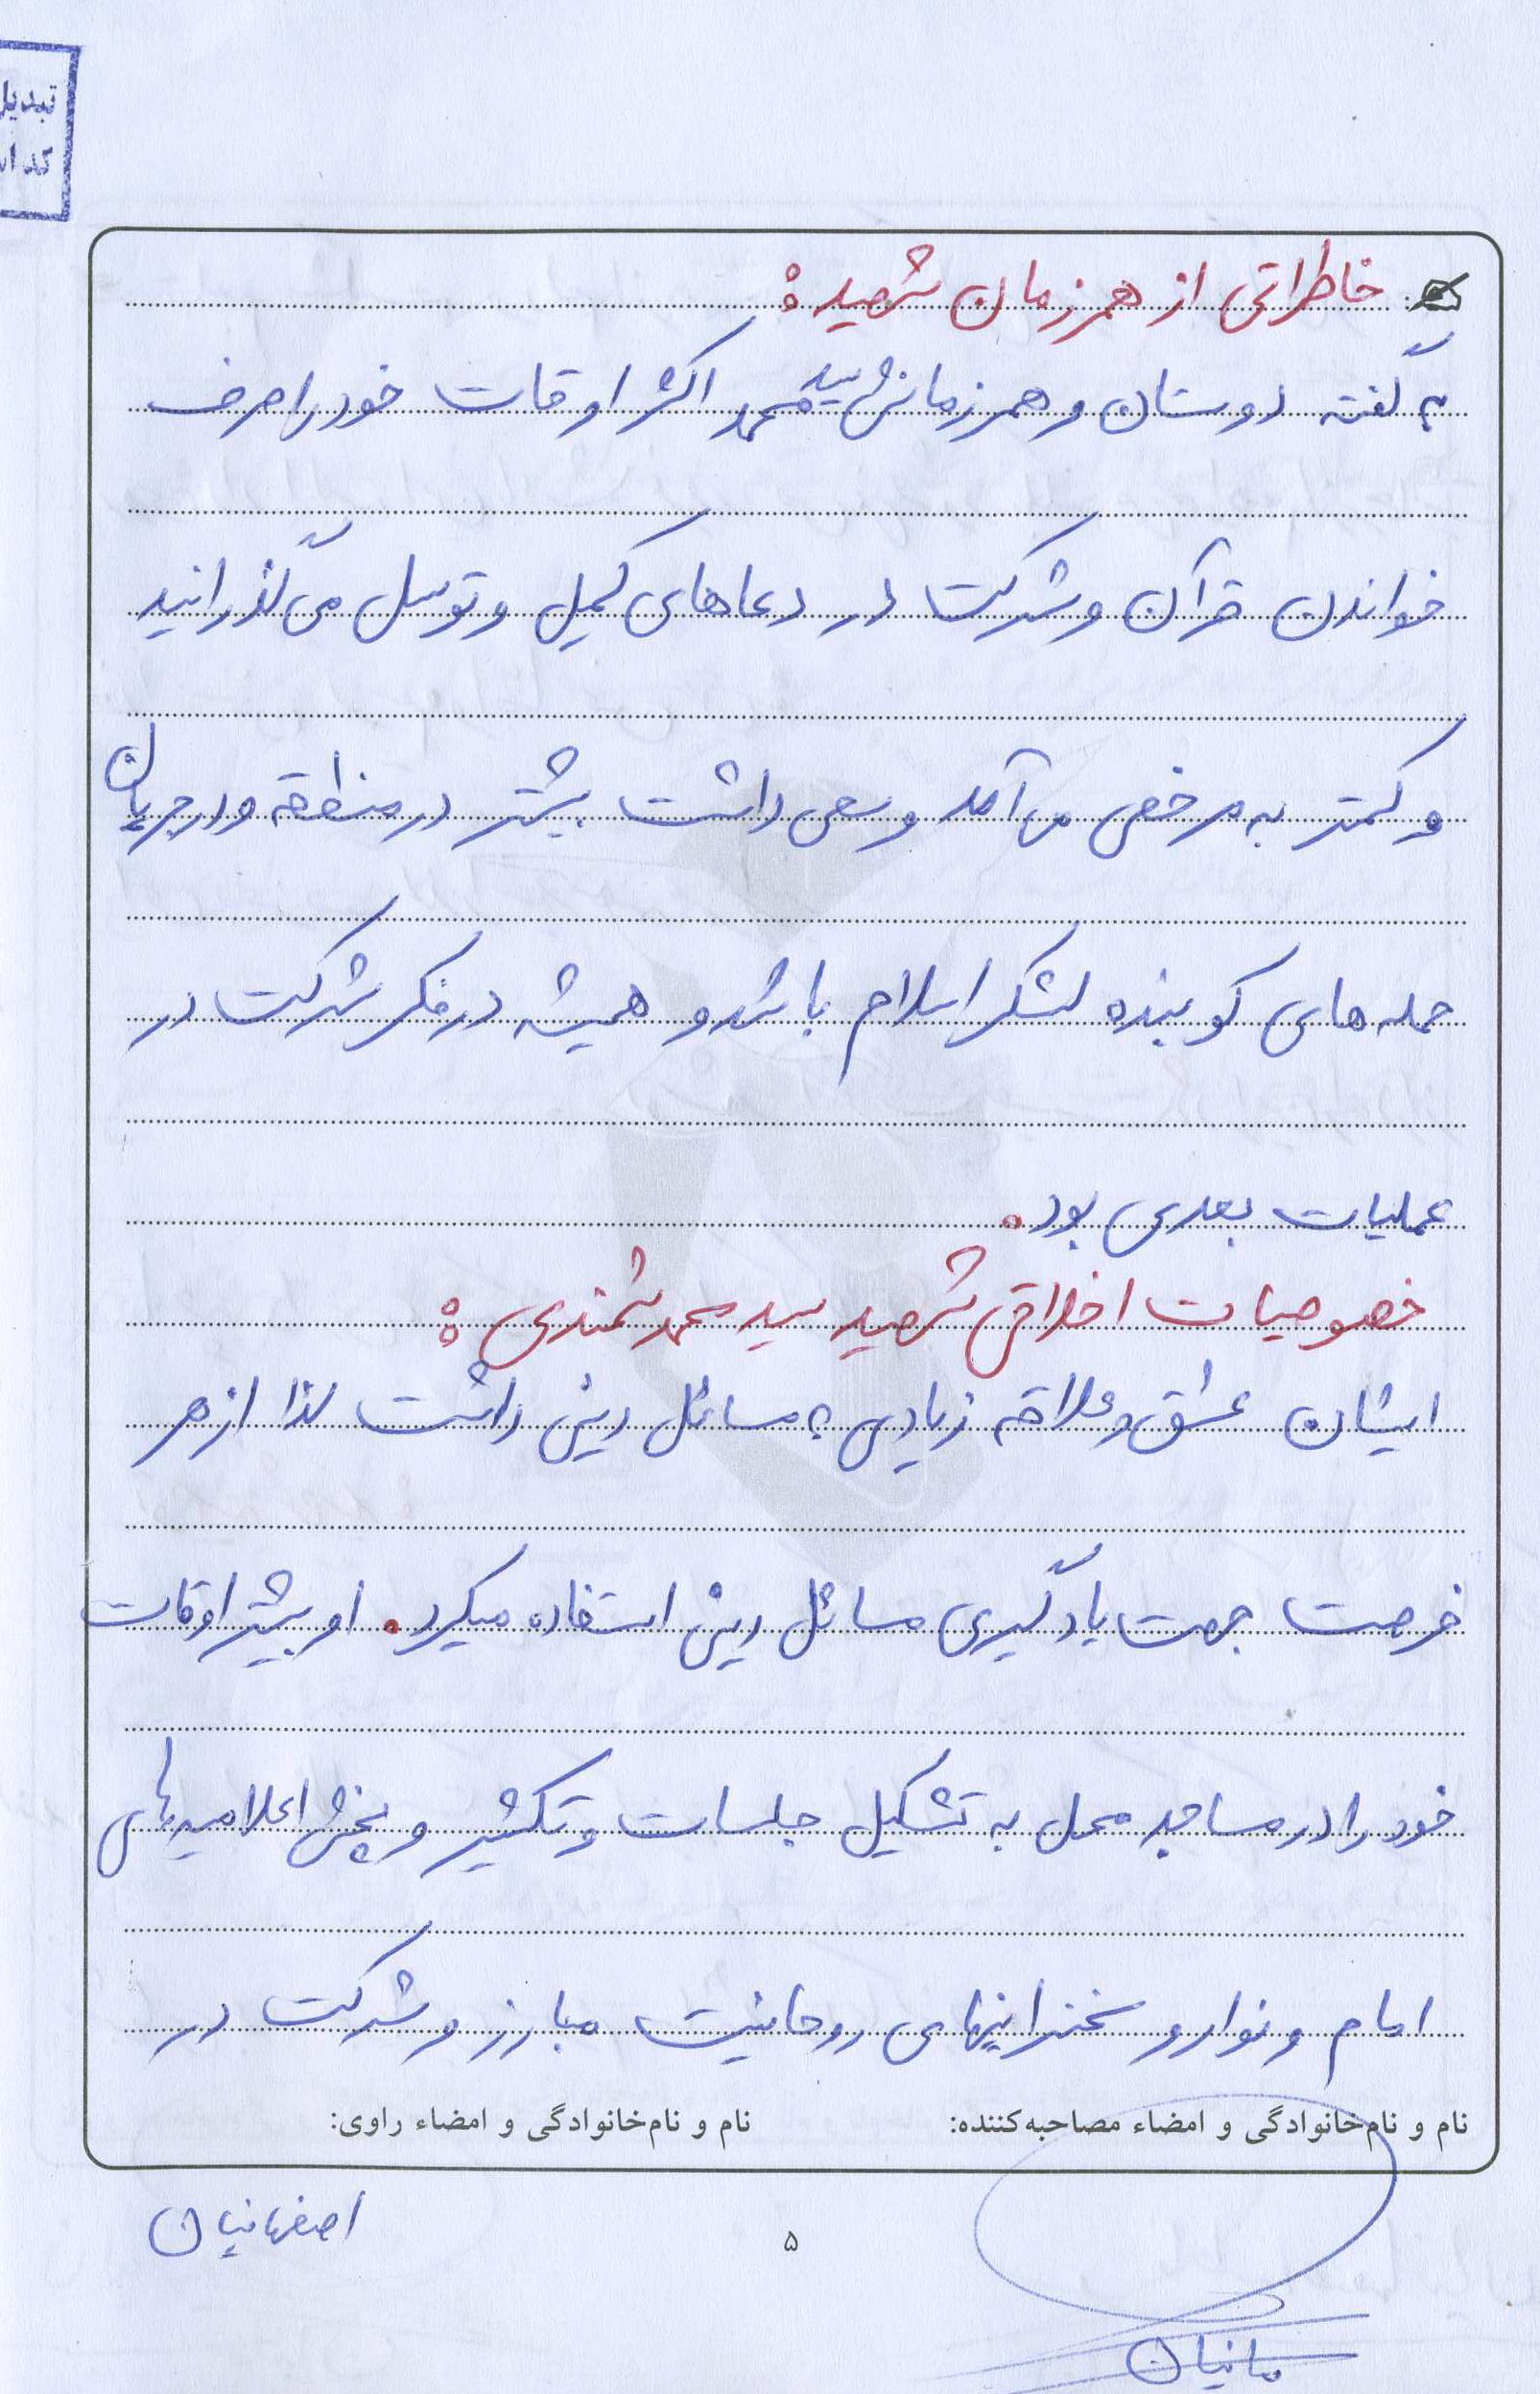 تبدیل
کد
خاطراتی از همرزمان شهید:
به گفته دوستان و همرزمانش سید محمد اکثر اوقات خود را صرف
خواندن قرآن و شرکت در دعاهای کمیل و توسل می گذرانید
و کمتر به مرخصی می آمد و سعی داشت بیشتر در منطقه و در جریان
حمله های کوبنده لشکر اسلام باشد و همیشه در فکر شرکت در
عملیات بعدی بود.
خصوصیات اخلاقی شهید سید محمد ثمندی:
ایشان عشق و علاقه زیادی به مسائل دینی داشت لذا از هر
فرصت جهت یادگیری مسائل دینی استفاده میکرد. او بیشتر اوقات
خود را در مساجد محل به تشکیل جلسات و تکثیر و پخش اعلامیه های
امام و نوار و سخنرانیهای روحانیت مبارز و شرکت در
نام و نام‌خانوادگی و امضاء مصاحبه‌کننده: نام و نام‌خانوادگی و امضاء راوی:
اصفهانیان
۵
مانیان